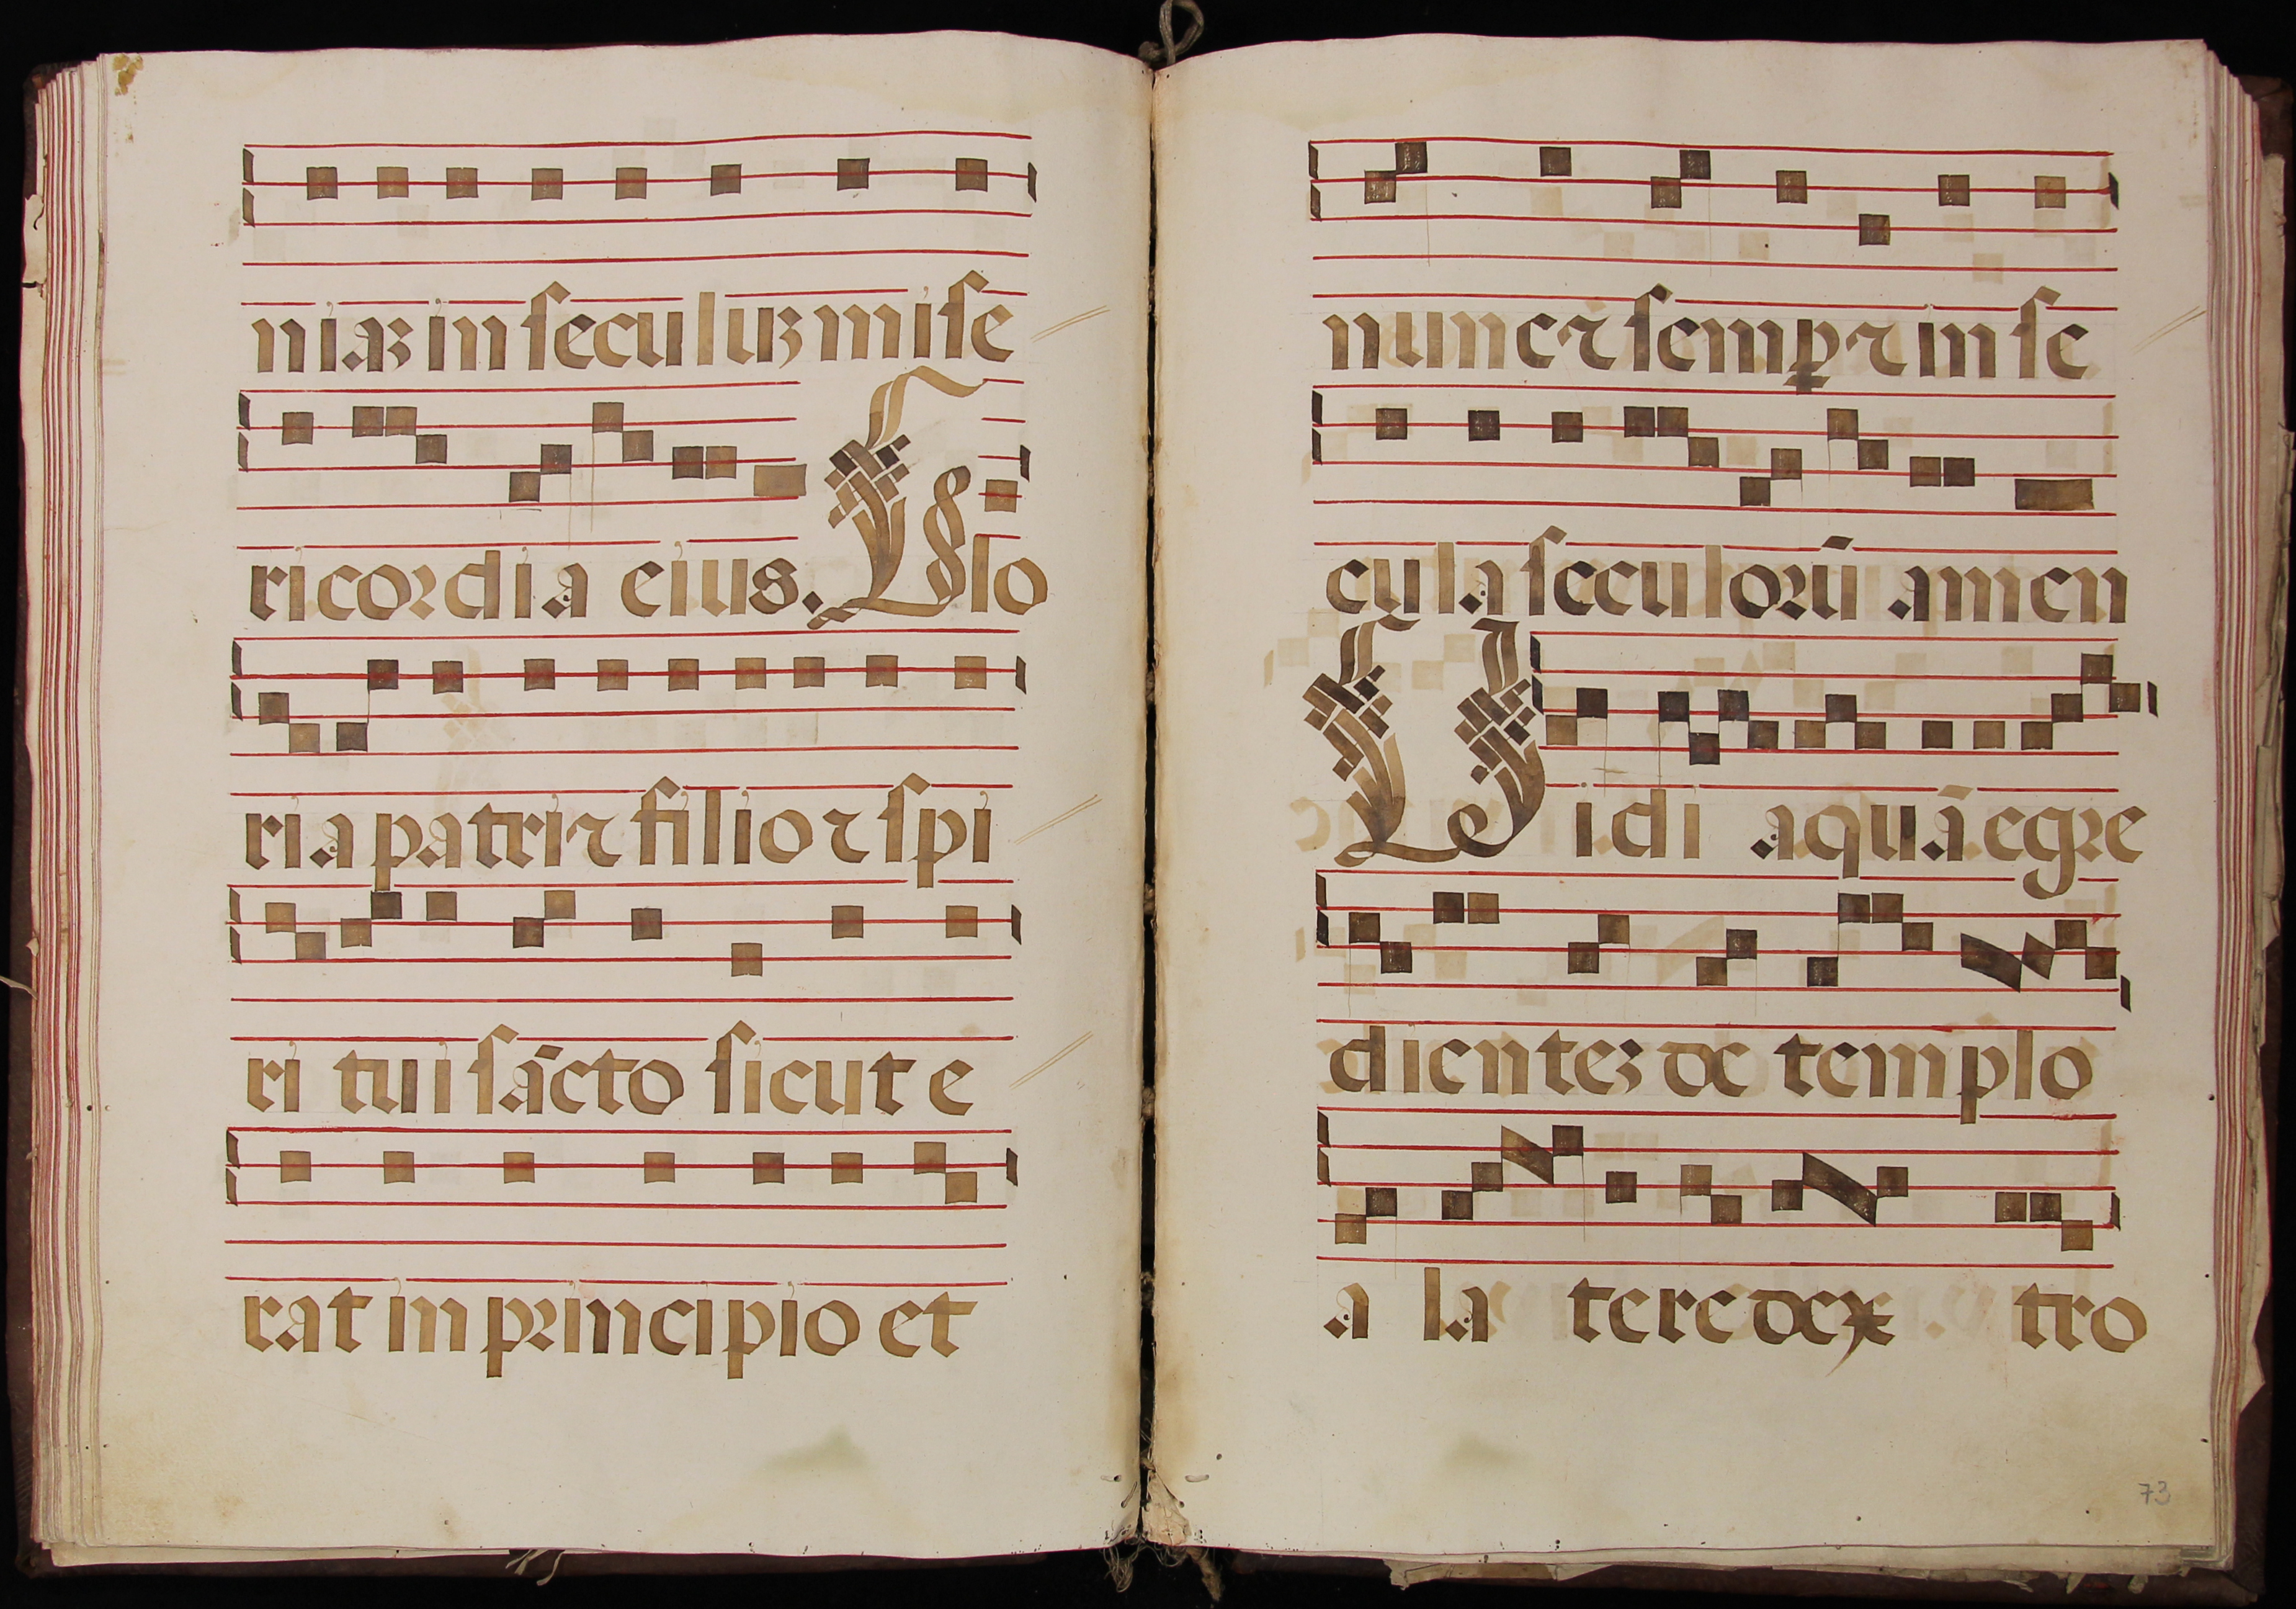 niaʒ in ſeculuʒ miſe
ricordia eius. Glo
ria patri ⁊ filio ⁊ ſpi
ri tui ſācto ſicut e
rat in principio et
nunc ⁊ ſemꝑ ⁊ in ſe
cula ſeculoꝝū amen
Vidi aquā egre
dienteʒ de templo
a la tere dex tro
73